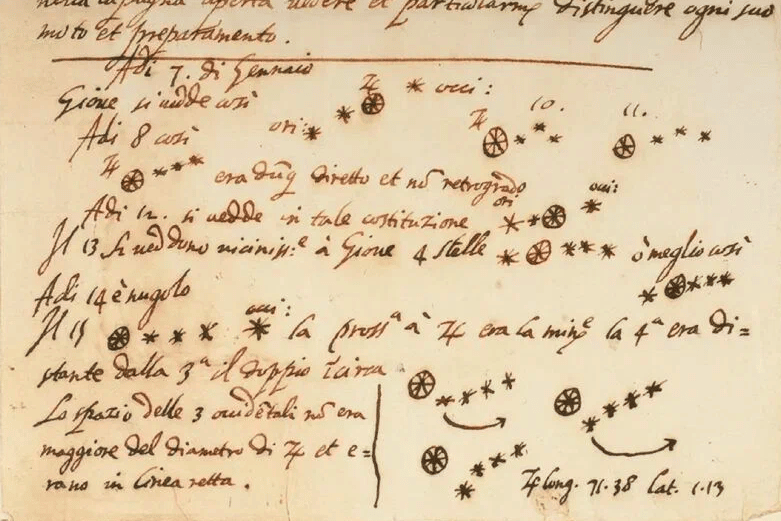 nella campagna aperta vedere et particolarmᵉ distinguere ogni suo
moto et preparamento.
Adi 7. di Gennaio
Gione si vedde così ♃ occi:
Adi 8 così ori: ♃ 10. 11.
♃ era dūq diretto et nō retrogrado
Adi 12. si vedde in tale costituzione ori occi:
Il 13 si veddono vicinissᵉ à Giove 4 stelle ò meglio così
Adi 14 è nugolo
Il 15 occi: la prossᵃ à ♃ era la minᵉ la 4ᵃ era di=
stante dalla 3ᵃ il doppio īcirca
Lo spazio delle 3 occidētali nō era
maggiore del diametro di ♃ et e=
rano in linea retta.
♃ long. 71.38 lat. 1.13